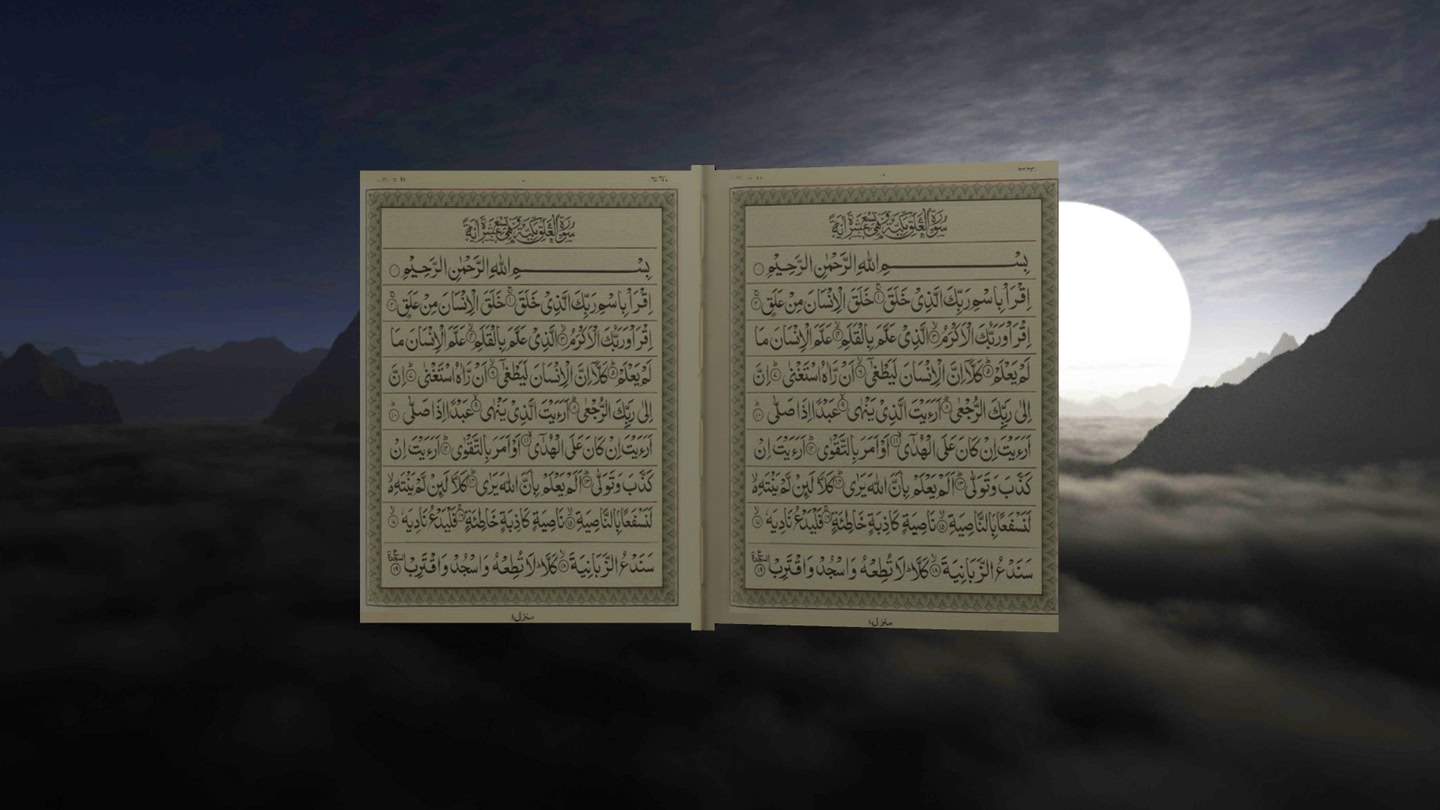 سُوْرَةُ الْعَلَقِ مَكِّيَّةٌ وَّهِيَ تِسْعَ عَشْرَةَ اٰيَةً
بِسْمِ اللهِ الرَّحْمٰنِ الرَّحِيْمِ
اِقْرَاْ بِاسْمِ رَبِّكَ الَّذِىْ خَلَقَ ۝١ خَلَقَ الْاِنْسَانَ مِنْ عَلَقٍ ۝٢
اِقْرَاْ وَرَبُّكَ الْاَكْرَمُ ۝٣ الَّذِىْ عَلَّمَ بِالْقَلَمِ ۝٤ عَلَّمَ الْاِنْسَانَ مَا
لَمْ يَعْلَمْ ۝٥ كَلَّاۤ اِنَّ الْاِنْسَانَ لَيَطْغٰٓى ۝٦ اَنْ رَّاٰهُ اسْتَغْنٰى ۝٧ اِنَّ
اِلٰى رَبِّكَ الرُّجْعٰى ۝٨ اَرَءَيْتَ الَّذِىْ يَنْهٰى ۝٩ عَبْدًا اِذَا صَلّٰى ۝١٠
اَرَءَيْتَ اِنْ كَانَ عَلَى الْهُدٰٓى ۝١١ اَوْ اَمَرَ بِالتَّقْوٰى ۝١٢ اَرَءَيْتَ اِنْ
كَذَّبَ وَتَوَلّٰى ۝١٣ اَلَمْ يَعْلَمْ بِاَنَّ اللهَ يَرٰى ۝١٤ كَلَّا لَئِنْ لَّمْ يَنْتَهِ
لَنَسْفَعًا بِالنَّاصِيَةِ ۝١٥ نَاصِيَةٍ كَاذِبَةٍ خَاطِئَةٍ ۝١٦ فَلْيَدْعُ نَادِيَهٗ ۝١٧
سَنَدْعُ الزَّبَانِيَةَ ۝١٨ كَلَّا لَا تُطِعْهُ وَاسْجُدْ وَاقْتَرِبْ ۝١٩ السجدة
منزل
سُوْرَةُ الْعَلَقِ مَكِّيَّةٌ وَّهِيَ تِسْعَ عَشْرَةَ اٰيَةً
بِسْمِ اللهِ الرَّحْمٰنِ الرَّحِيْمِ
اِقْرَاْ بِاسْمِ رَبِّكَ الَّذِىْ خَلَقَ ۝١ خَلَقَ الْاِنْسَانَ مِنْ عَلَقٍ ۝٢
اِقْرَاْ وَرَبُّكَ الْاَكْرَمُ ۝٣ الَّذِىْ عَلَّمَ بِالْقَلَمِ ۝٤ عَلَّمَ الْاِنْسَانَ مَا
لَمْ يَعْلَمْ ۝٥ كَلَّاۤ اِنَّ الْاِنْسَانَ لَيَطْغٰٓى ۝٦ اَنْ رَّاٰهُ اسْتَغْنٰى ۝٧ اِنَّ
اِلٰى رَبِّكَ الرُّجْعٰى ۝٨ اَرَءَيْتَ الَّذِىْ يَنْهٰى ۝٩ عَبْدًا اِذَا صَلّٰى ۝١٠
اَرَءَيْتَ اِنْ كَانَ عَلَى الْهُدٰٓى ۝١١ اَوْ اَمَرَ بِالتَّقْوٰى ۝١٢ اَرَءَيْتَ اِنْ
كَذَّبَ وَتَوَلّٰى ۝١٣ اَلَمْ يَعْلَمْ بِاَنَّ اللهَ يَرٰى ۝١٤ كَلَّا لَئِنْ لَّمْ يَنْتَهِ
لَنَسْفَعًا بِالنَّاصِيَةِ ۝١٥ نَاصِيَةٍ كَاذِبَةٍ خَاطِئَةٍ ۝١٦ فَلْيَدْعُ نَادِيَهٗ ۝١٧
سَنَدْعُ الزَّبَانِيَةَ ۝١٨ كَلَّا لَا تُطِعْهُ وَاسْجُدْ وَاقْتَرِبْ ۝١٩ السجدة
منزل